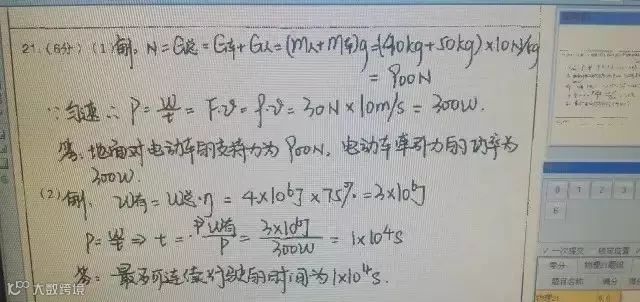 21.(6分)(1)解. N=G总=G车+G人=(m人+m车)g=(40kg+50kg)×10N/kg
=900N
∵匀速∴P=W/t=F·v=f·v=30N×10m/s=300W.
答:地面对电动车的支持力为900N,电动车牵引力的功率为
300W.
(2)解. W有=W总·η=4×10⁶J×75%=3×10⁶J
P=W/t⇒t=W有/P=3×10⁶J/300W=1×10⁴s
答:最多可连续行驶的时间为1×10⁴s.
0 1 2 3
6
一次提交
零分
题目名称
大数跨境